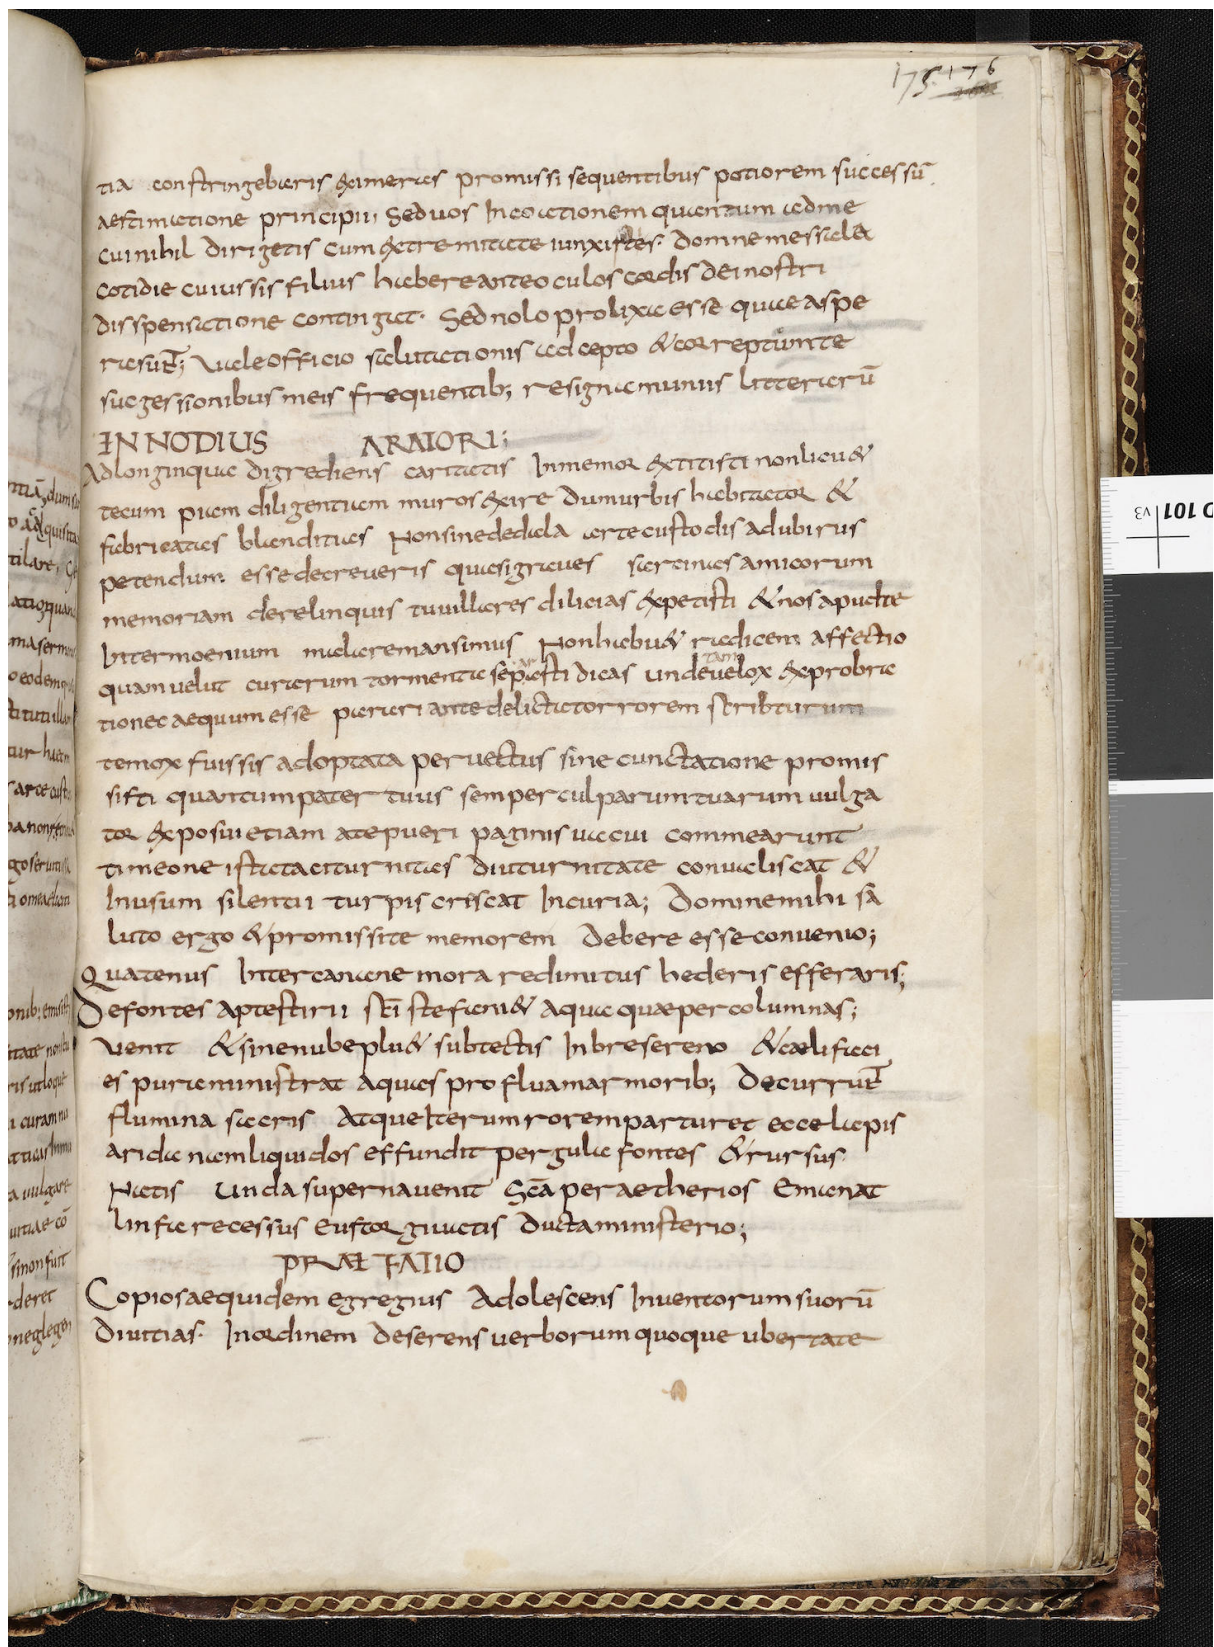 175. 176
tia constringebaris &imeras promissi sequentibus potiorem successū
aestimatione principiu, Sed uos Incoactionem quantum adme
cui nihil dirigetis cum &tremitate iunxistes. Domne messale&
cotidie cuiussis filius habere ante oculos cordis dei nostri
disspensatione contingat. Sed nolo prolixa esse quae aspe
ra sunt; Uale officio salutationis accepto & correptunte
sucgessionibus meis frequentib; resigna munus litterarū
ENNODIUS ARATORI;
Ad longinqua digrediens caritatis Inmemor &titisti non licu&
tecum piam diligentiam muros &ire dum urbis habitator &
fabricatas blanditias Non sine dedala arte custodis ad ubirus
petendum esse decreueris quasi graues sartinas amicorum
memoriam derelinquis tu uillares dilicias &petisti & nos apud te
Intermoenium mala remansimus Non habu& radicem affectio
quam uelut curarum tormenta separasti dicas unde tam uelox &probra
tione c aequum esse pariari ante delictatorrorem scribturum
te mox fuissis adoptata peruectus sine cunctatione promis
sisti quantum pater tuus semper culparum tuarum uulga
tor &posui etiam ate pueri paginis uacui commearunt
timeo ne ista taciturnitas diuturnitate conualiscat &
Inuisum silentii turpis criscat Incuria; Domine mihi sa
luto ergo & promissi te memorem debere esse conuenio;
Quatenus Inter canone mora redimitus hederis efferaris;
De fontes aptestirii sc̄i stefani & aqua quae per columnas;
uenit & sine nube plu& subtectis Inbre sereno & caeli faci
es pura ministrat aquas pro flua marmorib; Decurrunt
flumina sacris Atque Iterum rorem parturet ecce lapis
arida nam liquidos effundit pergula fontes & rursus
Natis unda superna uenit Sc̄a per aetherios Emanat
linfa recessus Eustorgi uatis ducta ministerio;
PRAEFATIO
Copiosa equidem egregius Adolescens Inuentorum suorū
Diuitias. In ordinem deserens uerborum quoque ubertate